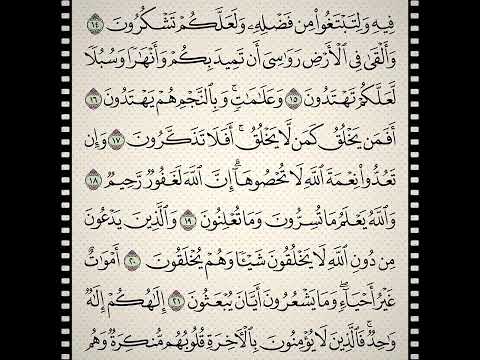 فِيهِ وَلِتَبْتَغُوا۟ مِن فَضْلِهِۦ وَلَعَلَّكُمْ تَشْكُرُونَ ١٤
وَأَلْقَىٰ فِى ٱلْأَرْضِ رَوَٰسِىَ أَن تَمِيدَ بِكُمْ وَأَنْهَٰرًا وَسُبُلًا
لَّعَلَّكُمْ تَهْتَدُونَ ١٥ وَعَلَٰمَٰتٍ ۚ وَبِٱلنَّجْمِ هُمْ يَهْتَدُونَ ١٦
أَفَمَن يَخْلُقُ كَمَن لَّا يَخْلُقُ ۗ أَفَلَا تَذَكَّرُونَ ١٧ وَإِن
تَعُدُّوا۟ نِعْمَةَ ٱللَّهِ لَا تُحْصُوهَآ ۗ إِنَّ ٱللَّهَ لَغَفُورٌ رَّحِيمٌ ١٨
وَٱللَّهُ يَعْلَمُ مَا تُسِرُّونَ وَمَا تُعْلِنُونَ ١٩ وَٱلَّذِينَ يَدْعُونَ
مِن دُونِ ٱللَّهِ لَا يَخْلُقُونَ شَيْـًٔا وَهُمْ يُخْلَقُونَ ٢٠ أَمْوَٰتٌ
غَيْرُ أَحْيَآءٍ ۖ وَمَا يَشْعُرُونَ أَيَّانَ يُبْعَثُونَ ٢١ إِلَٰهُكُمْ إِلَٰهٌ
وَٰحِدٌ ۚ فَٱلَّذِينَ لَا يُؤْمِنُونَ بِٱلْأَخِرَةِ قُلُوبُهُم مُّنكِرَةٌ وَهُم